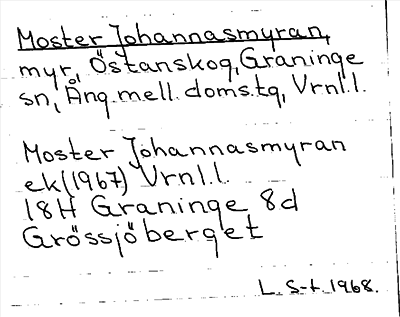 Moster Johannasmyran,
myr, Östanskog, Graninge
sn, Ång. mell. doms. tg, Vrnl.l.
Moster Johannasmyran
ek(1967) Vrnl.l.
18H Graninge 8d
Grössjöberget
L. S-t. 1968.